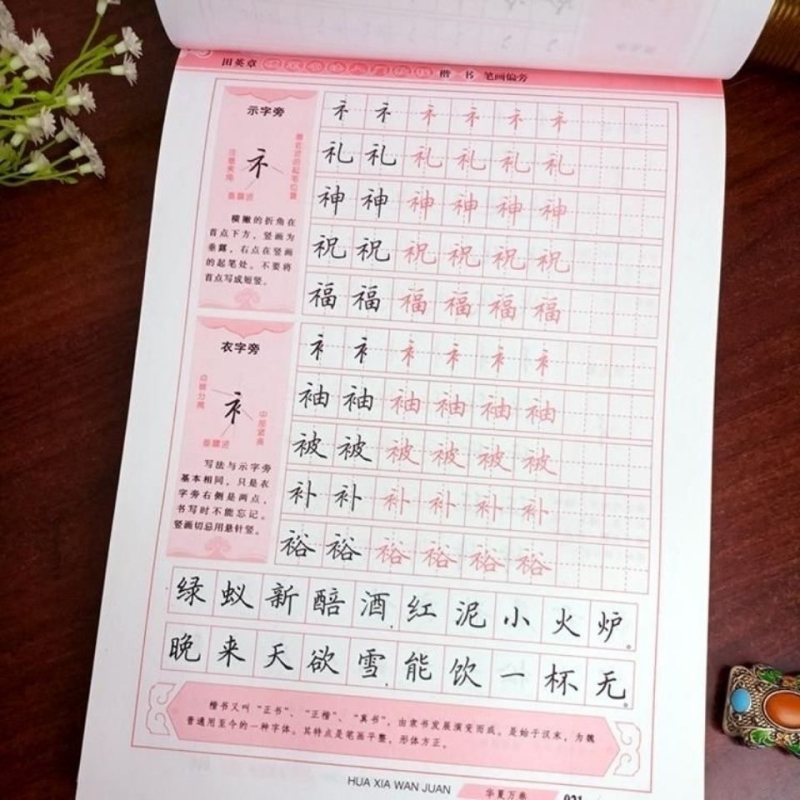 田英章
楷书 笔画偏旁
示字旁
礻
横撇的折角在
首点下方,竖画为
垂露,右点在竖画
的起笔处。不要将
首点写成短竖。
礻 礻 礻 礻 礻 礻
礼 礼 礼 礼 礼 礼
神 神 神 神 神 神
祝 祝 祝 祝 祝 祝
福 福 福 福 福 福
衣字旁
衤
写法与示字旁
基本相同,只是衣
字旁右侧是两点,
书写时不能忘记。
竖画切忌用悬针竖。
衤 衤 衤 衤 衤 衤
袖 袖 袖 袖 袖 袖
被 被 被 被 被 被
补 补 补 补 补 补
裕 裕 裕 裕 裕 裕
绿蚁新醅酒,红泥小火炉。
晚来天欲雪,能饮一杯无。
楷书又叫“正书”、“正楷”、“真书”,由隶书发展演变而成。是始于汉末,为魏
晋通用至今的一种字体。其特点是笔画平整,形体方正。
HUA XIA WAN JUAN 华夏万卷 021